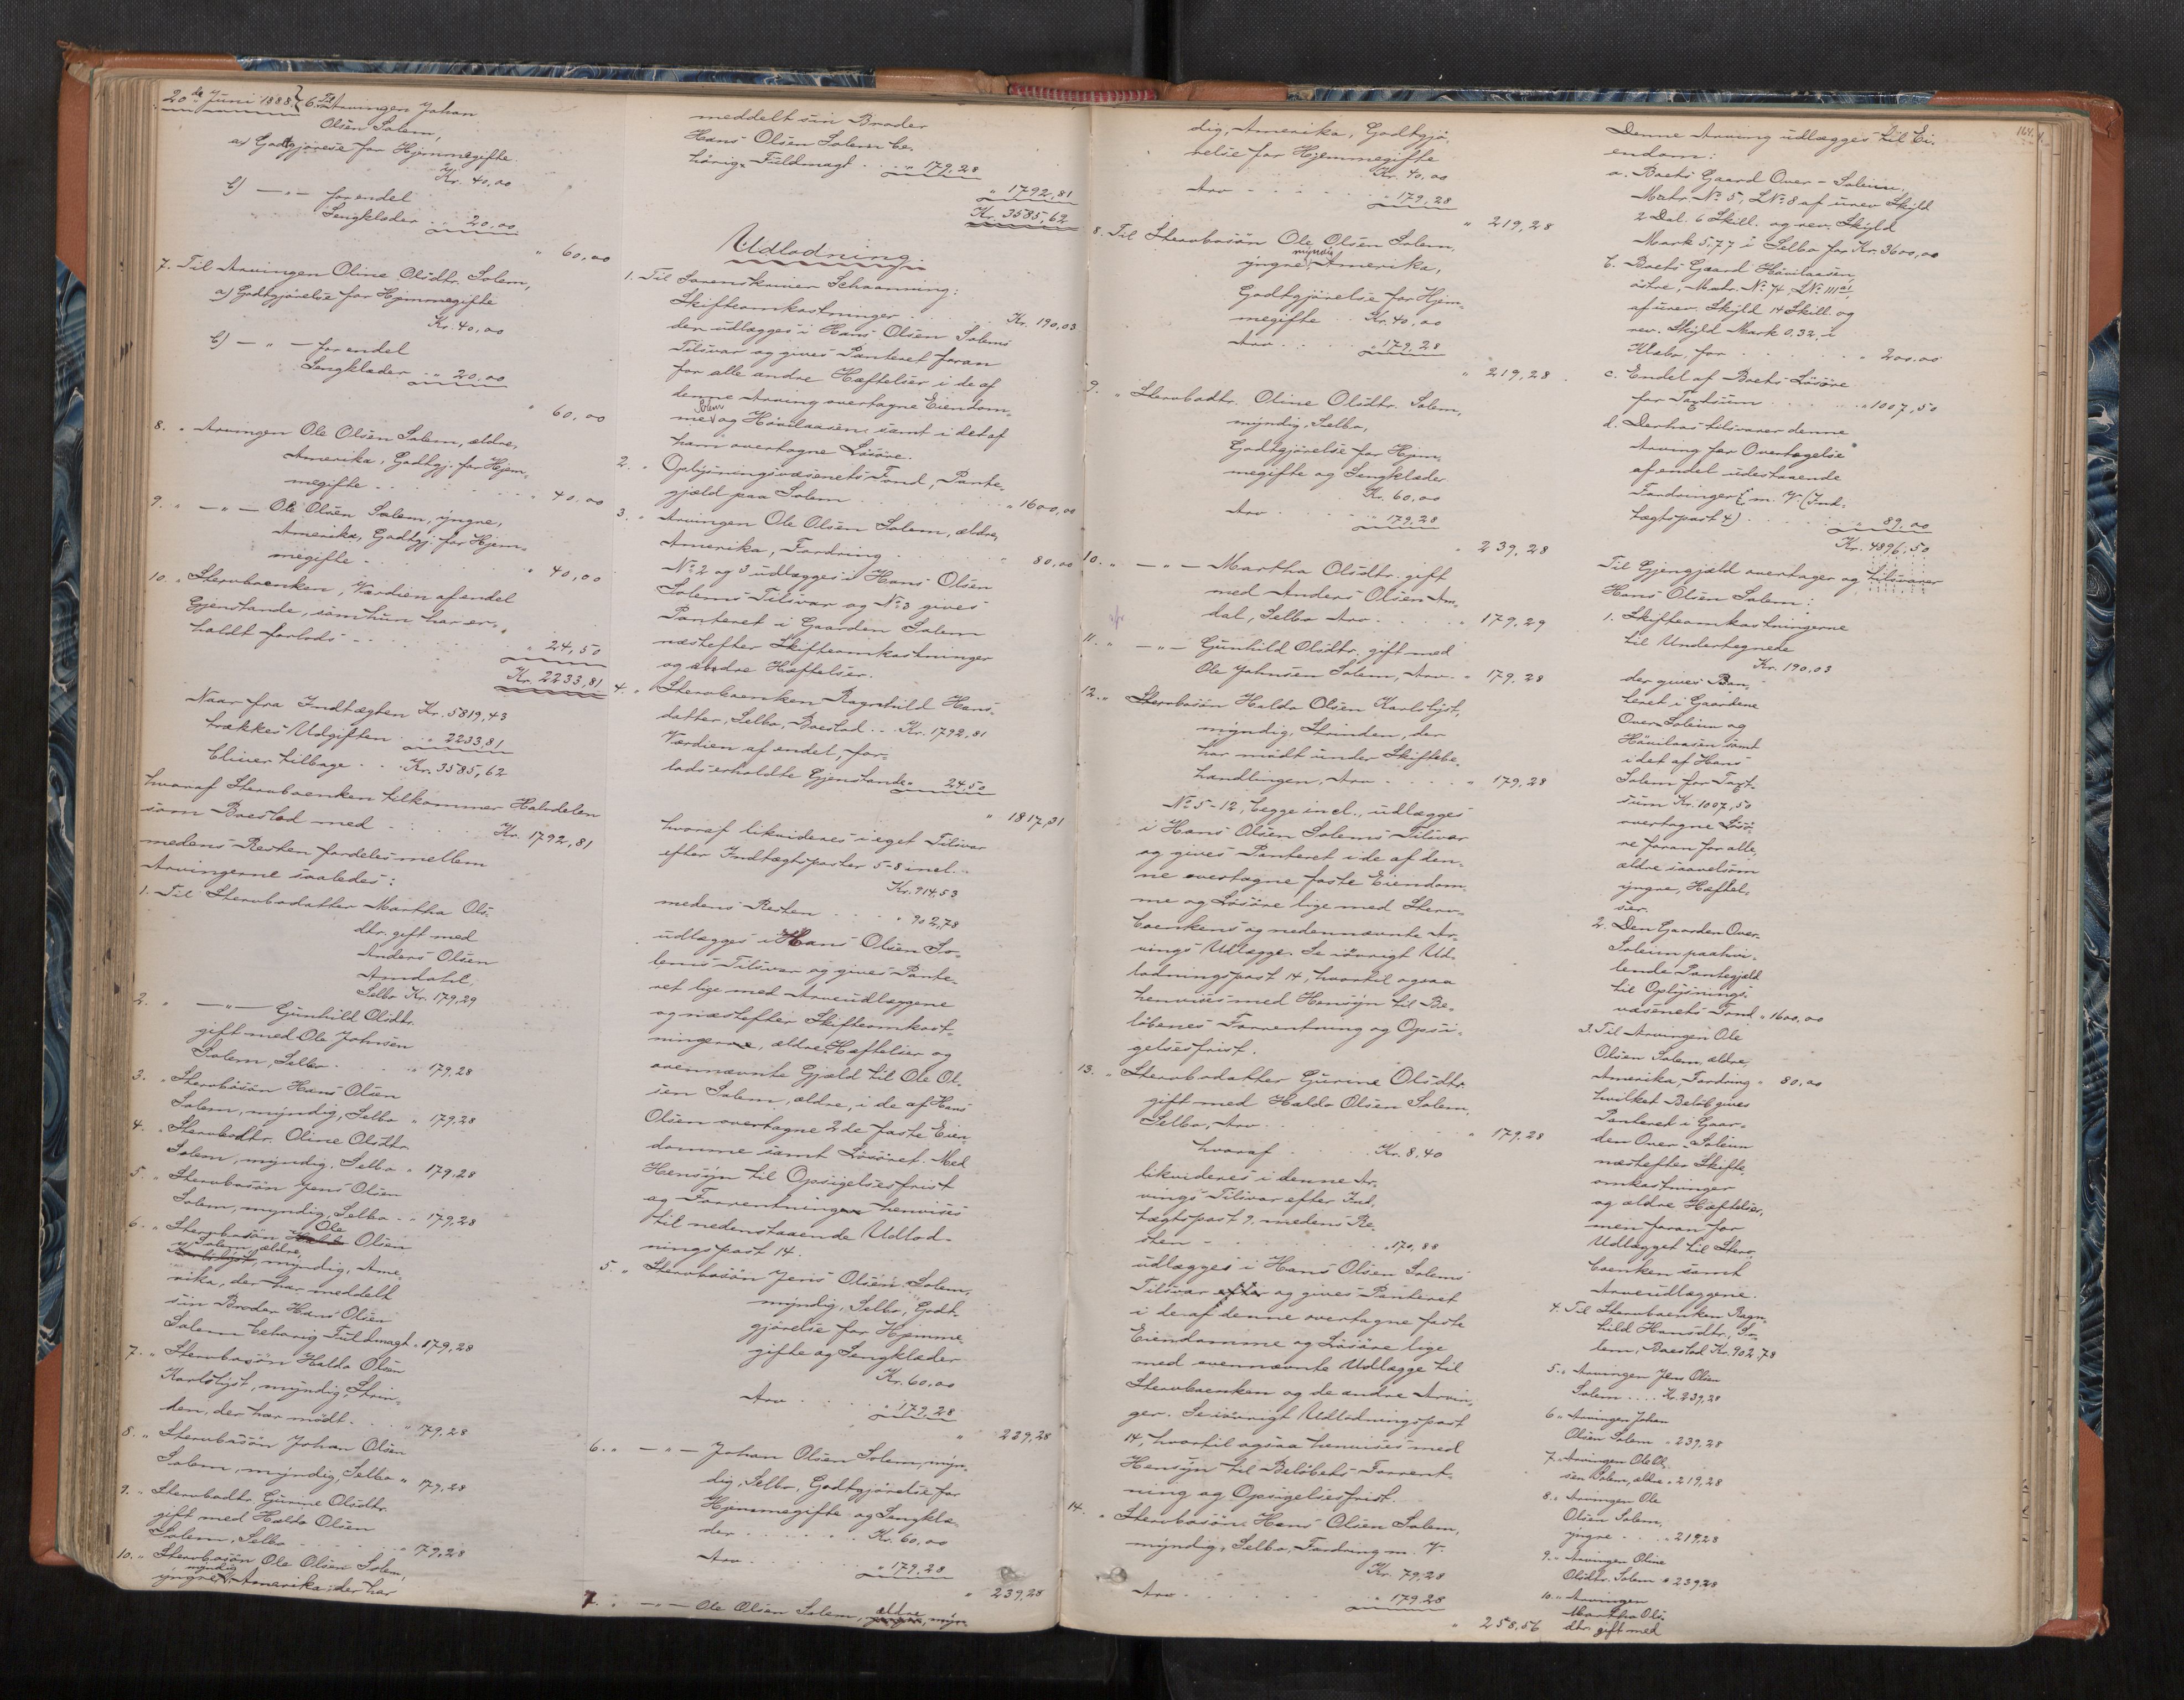 20de Juni 1888.
6. Til Arvingen Johan
Olsen Solem,
a) Godtgjørelse for Hjemmegifte
Kr. 40,00
b) — " — for endel
Sengklæder . . " 20,00
" 60,00
7. Til Arvingen Oline Olsdtr. Solem,
a) Godtgjørelse for Hjemmegifte
Kr. 40,00
b) — " — for endel
Sengklæder . . " 20,00
" 60,00
8. " Arvingen Ole Olsen Solem, ældre,
Amerika, Godtgj. for Hjem-
megifte . . . . . " 40,00
9. " — " — Ole Olsen Solem, yngre,
Amerika, Godtgj. for Hjem-
megifte . . . . . " 40,00
10. " Stervboenken, Værdien af endel
Gjenstande, som hun har er-
holdt forlods . . . . " 24,50
Kr. 2233,81
Naar fra Indtægten Kr. 5819,43
trækkes Udgiften . . " 2233,81
bliver tilbage . . . Kr. 3585,62
hvoraf Stervboenken tilkommer Halvdelen
som Boeslod med . . . Kr. 1792,81
medens Resten fordeles mellem
Arvingerne saaledes:
1. Til Stervbodatter Martha Ols-
dtr. gift med
Anders Olsen
Amdahl,
Selbo Kr. 179,29
2. " — " — Gunhild Olsdtr.
gift med Ole Johnsen
Solem, Selbo . . . " 179,28
3. " Stervbosøn Hans Olsen
Solem, myndig, Selbo " 179,28
4. " Stervbodtr. Oline Olsdtr.
Solem, myndig, Selbo " 179,28
5. " Stervbosøn Jens Olsen
Solem, myndig, Selbo . " 179,28
6. " Stervbosøn Ole Olsen
Solem, ældre,
Karlslyst, myndig, Ame-
rika, der har meddelt
sin Broder Hans Olsen
Solem behørig Fuldmagt " 179,28
7. " Stervbosøn Haldo Olsen
Karlslyst, myndig, Strin-
den, der har mødt . . . " 179,28
8. " Stervbosøn Johan Olsen
Solem, myndig, Selbo " 179,28
9. " Stervbodtr. Gurine Olsdtr.
gift med Haldo Olsen
Solem, Selbo . . . . " 179,28
10. " Stervbosøn Ole Olsen Solem,
myndig
yngre, Amerika, der har
meddelt sin Broder
Hans Olsen Solem be-
hørig Fuldmagt . . . " 179,28
" 1792,81
Kr. 3585,62
Udlodning.
1. Til Sorenskriver Schaanning:
Skifteomkostninger . . . Kr. 190,03
den udlægges i Hans Olsen Solems
Tilsvar og gives Panteret foran
for alle andre Hæftelser i de af
denne Arving overtagne Eiendom-
Solem
me og Hövilaasen samt i det af
ham overtagne Løsøre.
2. " Oplysningsvæsenets Fond, Pante-
gjæld paa Solem . . . . " 1600,00
3. " Arvingen Ole Olsen Solem, ældre,
Amerika, Fordring . . . . " 80,00
No 2 og 3 udlægges i Hans Olsen
Solems Tilsvar og No 3 gives
Panteret i Gaarden Solem
næstefter Skifteomkostninger
og ældre Hæftelser.
4. " Stervboenken Ragnhild Hans-
datter, Selbo, Boeslod . . Kr. 1792,81
Værdien af endel, for-
lods erholdte Gjenstande " 24,50
" 1817,31
hvoraf likvideres i eget Tilsvar
efter Indtægtsposter 5-8 incl.
Kr. 914,53
medens Resten . . . " 902,78
udlægges i Hans Olsen So-
lems Tilsvar og gives Pante-
ret lige med Arveudlæggene
og næstefter Skifteomkost-
ningerne, ældre Hæftelser og
ovennævnte Gjæld til Ole Ol-
sen Solem, ældre, i de af Hans
Olsen overtagne 2de faste Eien-
domme samt Løsøret. Med
Hensyn til Opsigelsesfrist
og Forrentningen henvises
til nedenstaaende Udlod-
ningspost 14.
5. " Stervbosøn Jens Olsen Solem,
myndig, Selbo, Godt-
gjørelse for Hjemme-
gifte og Sengklæder
Kr. 60,00
Arv . . . . . " 179,28
" 239,28
6. " — " — Johan Olsen Solem, myn-
dig, Selbo, Godtgjørelse for
Hjemmegifte og Sengklæ-
der . . . . . Kr. 60,00
Arv . . . . . " 179,28
" 239,28
7. " — " — Ole Olsen Solem, ældre, myn-
dig, Amerika, Godtgjø-
relse for Hjemmegifte
Kr. 40,00
Arv . . . . . " 179,28
" 219,28
8. Til Stervbosøn Ole Olsen Solem,
myndig
yngre, Amerika,
Godtgjørelse for Hjem-
megifte . . Kr. 40,00
Arv . . . . " 179,28
" 219,28
9. " Stervbodtr. Oline Olsdtr. Solem,
myndig, Selbo,
Godtgjørelse for Hjem-
megifte og Sengklæder
Kr. 60,00
Arv . . . . " 179,28
" 239,28
10. " — " — Martha Olsdtr. gift
med Anders Olsen Am-
dal, Selbo Arv . . . . " 179,29
11. " — " — Gunhild Olsdtr. gift med
Ole Johnsen Solem, Arv . " 179,28
12. " Stervbosøn Haldo Olsen Karlslyst,
myndig, Strinden, der
har mødt under Skiftebe-
handlingen, Arv . . . . " 179,28
No 5-12, begge incl., udlægges
i Hans Olsen Solems Tilsvar
og gives Panteret i de af den-
ne overtagne faste Eiendom-
me og Løsøre lige med Sterv-
boenkens og nedennævnte Ar-
vings Udlægge. Se iøvrigt Ud-
lodningspost 14, hvortil ogsaa
henvises med Hensyn til Be-
løbenes Forrentning og Opsi-
gelsesfrist.
13. " Stervbodatter Gurine Olsdtr.
gift med Haldo Olsen Solem,
Selbo, Arv . . . . . " 179,28
hvoraf . . . Kr. 8,40
likvideres i denne Ar-
vings Tilsvar efter Ind-
tægtspost 9, medens Re-
sten . . . . . " 170,88
udlægges i Hans Olsen Solems
Tilsvar og gives Panteret
i de af denne overtagne faste
Eiendomme og Løsøre lige
med ovennævnte Udlægge til
Stervboenken og de andre Arvin-
ger. Se iøvrigt Udlodningspost
14, hvortil ogsaa henvises med
Hensyn til Beløbets Forrent-
ning og Opsigelsesfrist.
14. " Stervbosøn Hans Olsen Solem,
myndig, Selbo, Fordring m. V.
Kr. 79,28
Arv . . . . . " 179,28
" 258,56
Denne Arving udlægges til Ei-
endom:
a. Boets Gaard Over-Soleim,
Matr. No 5, LNo 8 af urev. Skyld
2 Dal. 6 Skill. og rev. Skyld
Mark 5,77 i Selbo for Kr. 3600,00
b. Boets Gaard Hövilaasen,
østre, Matr. No 74, LNo 111a1,
af urev. Skyld 14 Skill. og
rev. Skyld Mark 0,32, i
Klæbo, for . . . . " 200,00
c. Endel af Boets Løsøre
for Taxtsum . . . . " 1007,50
d. Derhos tilsvarer denne
Arving for Overtagelse
af endel udestaaende
Fordringer m. V. (Ind-
tægtspost 4) . . . . " 89,00
Kr. 4896,50
Til Gjengjæld overtager og tilsvarer
Hans Olsen Solem:
1. Skifteomkostningerne
til Undertegnede
Kr. 190,03
der gives Pan-
teret i Gaardene
Over-Soleim og
Hövilaasen samt
i det af Hans
Solem for Taxt-
sum Kr. 1007,50
overtagne Løsø-
re foran for alle,
ældre saavelsom
yngre, Hæftel-
ser.
2. Den Gaarden Over-
Soleim paahvi-
lende Pantegjæld
til Oplysnings-
væsenets Fond " 1600,00
3. Til Arvingen Ole
Olsen Solem, ældre,
Amerika, Fordring " 80,00
hvilket Beløb gives
Panteret i Gaar-
den Over-Soleim
næstefter Skifte-
omkostninger
og ældre Hæftelser,
men foran for
Udlægget til Sterv-
boenken samt
Arveudlæggene.
4. Til Stervboenken Ragn-
hild Hansdtr., So-
lem, Boeslod Kr. 902,78
5. " Arvingen Jens Olsen
Solem . . . . Kr. 239,28
6. " Arvingen Johan
Olsen Solem . " 239,28
7. " Arvingen Ole Ol-
sen Solem, ældre " 219,28
8. " Arvingen Ole
Olsen Solem,
yngre . . . . " 219,28
9. " Arvingen Oline
Olsdtr. Solem " 239,28
10. " Arvingen
Martha Ols-
dtr. gift med